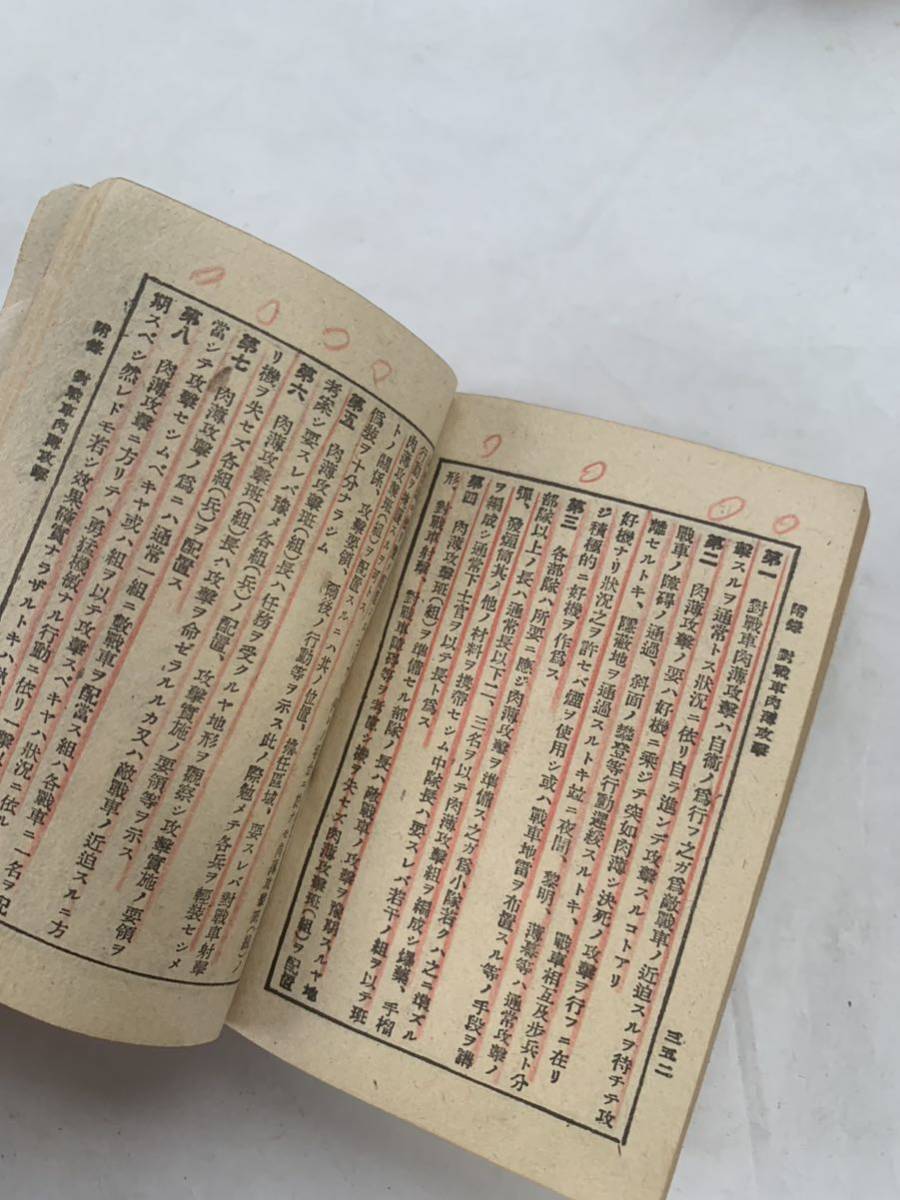 附錄 對戰車肉薄攻擊
三五二
第一 對戰車肉薄攻擊ハ自衞ノ爲行フ之ガ爲敵戰車ノ近迫スルヲ待チテ攻
擊スルヲ通常トス狀況ニ依リ自ラ進ンデ攻擊スルコトアリ
第二 肉薄攻擊ノ要ハ好機ニ乘ジテ突如肉薄シ決死ノ攻擊ヲ行フニ在リ
戰車ノ障碍ノ通過、斜面ノ攀登等行動遲緩スルトキ、戰車相互及步兵ト分
離セルトキ、隱蔽地ヲ通過スルトキ竝ニ夜間、黎明、薄暮等ハ通常攻擊ノ
好機ナリ狀況之ヲ許セバ煙ヲ使用シ或ハ戰車地雷ヲ布置スル等ノ手段ヲ講
ジ積極的ニ好機ヲ作爲ス
第三 各部隊ハ所要ニ應ジ肉薄攻擊ヲ準備ス之ガ爲小隊若クハ之ニ準ズル
部隊以上ノ長ハ通常長以下二、三名ヲ以テ肉薄攻擊組ヲ編成シ爆藥、手榴
彈、發煙筒其ノ他ノ材料ヲ携帶セシム中隊長ハ要スレバ若干ノ組ヲ以テ班
ヲ編成シ通常下士官ヲ以テ長ト爲ス
第四 肉薄攻擊班(組)ヲ準備セル部隊ノ長ハ敵戰車ノ攻擊ヲ豫期スルヤ地
形、對戰車射擊、對戰車障碍等ヲ考慮シ機ヲ失セズ肉薄攻擊班(組)ヲ配置
トノ關係、攻擊要領、爾後ノ行動等ヲ示ス此ノ際勉メテ各兵ヲ輕裝セシメ
僞裝ヲ十分ナラシム
第五 肉薄攻擊班(組)ヲ配置スルニハ其ノ位置、擔任區域、要スレバ對戰車射擊
考案シ要スレバ豫メ各組(兵)ノ配置、攻擊實施ノ要領等ヲ示ス
第六 肉薄攻擊班(組)長ハ任務ヲ受クルヤ地形ヲ觀察シ攻擊實施ノ要領ヲ
リ機ヲ失セズ各組(兵)ヲ配置ス
第七 肉薄攻擊ノ爲ニハ通常一組ニ敵戰車ヲ配當ス組ハ各戰車ニ一名ヲ配
當シテ攻擊セシムベキヤ或ハ組ヲ以テ攻擊スベキヤハ狀況ニ依ル
第八 肉薄攻擊ニ方リテハ勇猛機敏ナル行動ニ依リ一擊
期スベシ然レドモ若シ效果確實ナラザルトキハ
附錄 對戰車肉薄攻擊